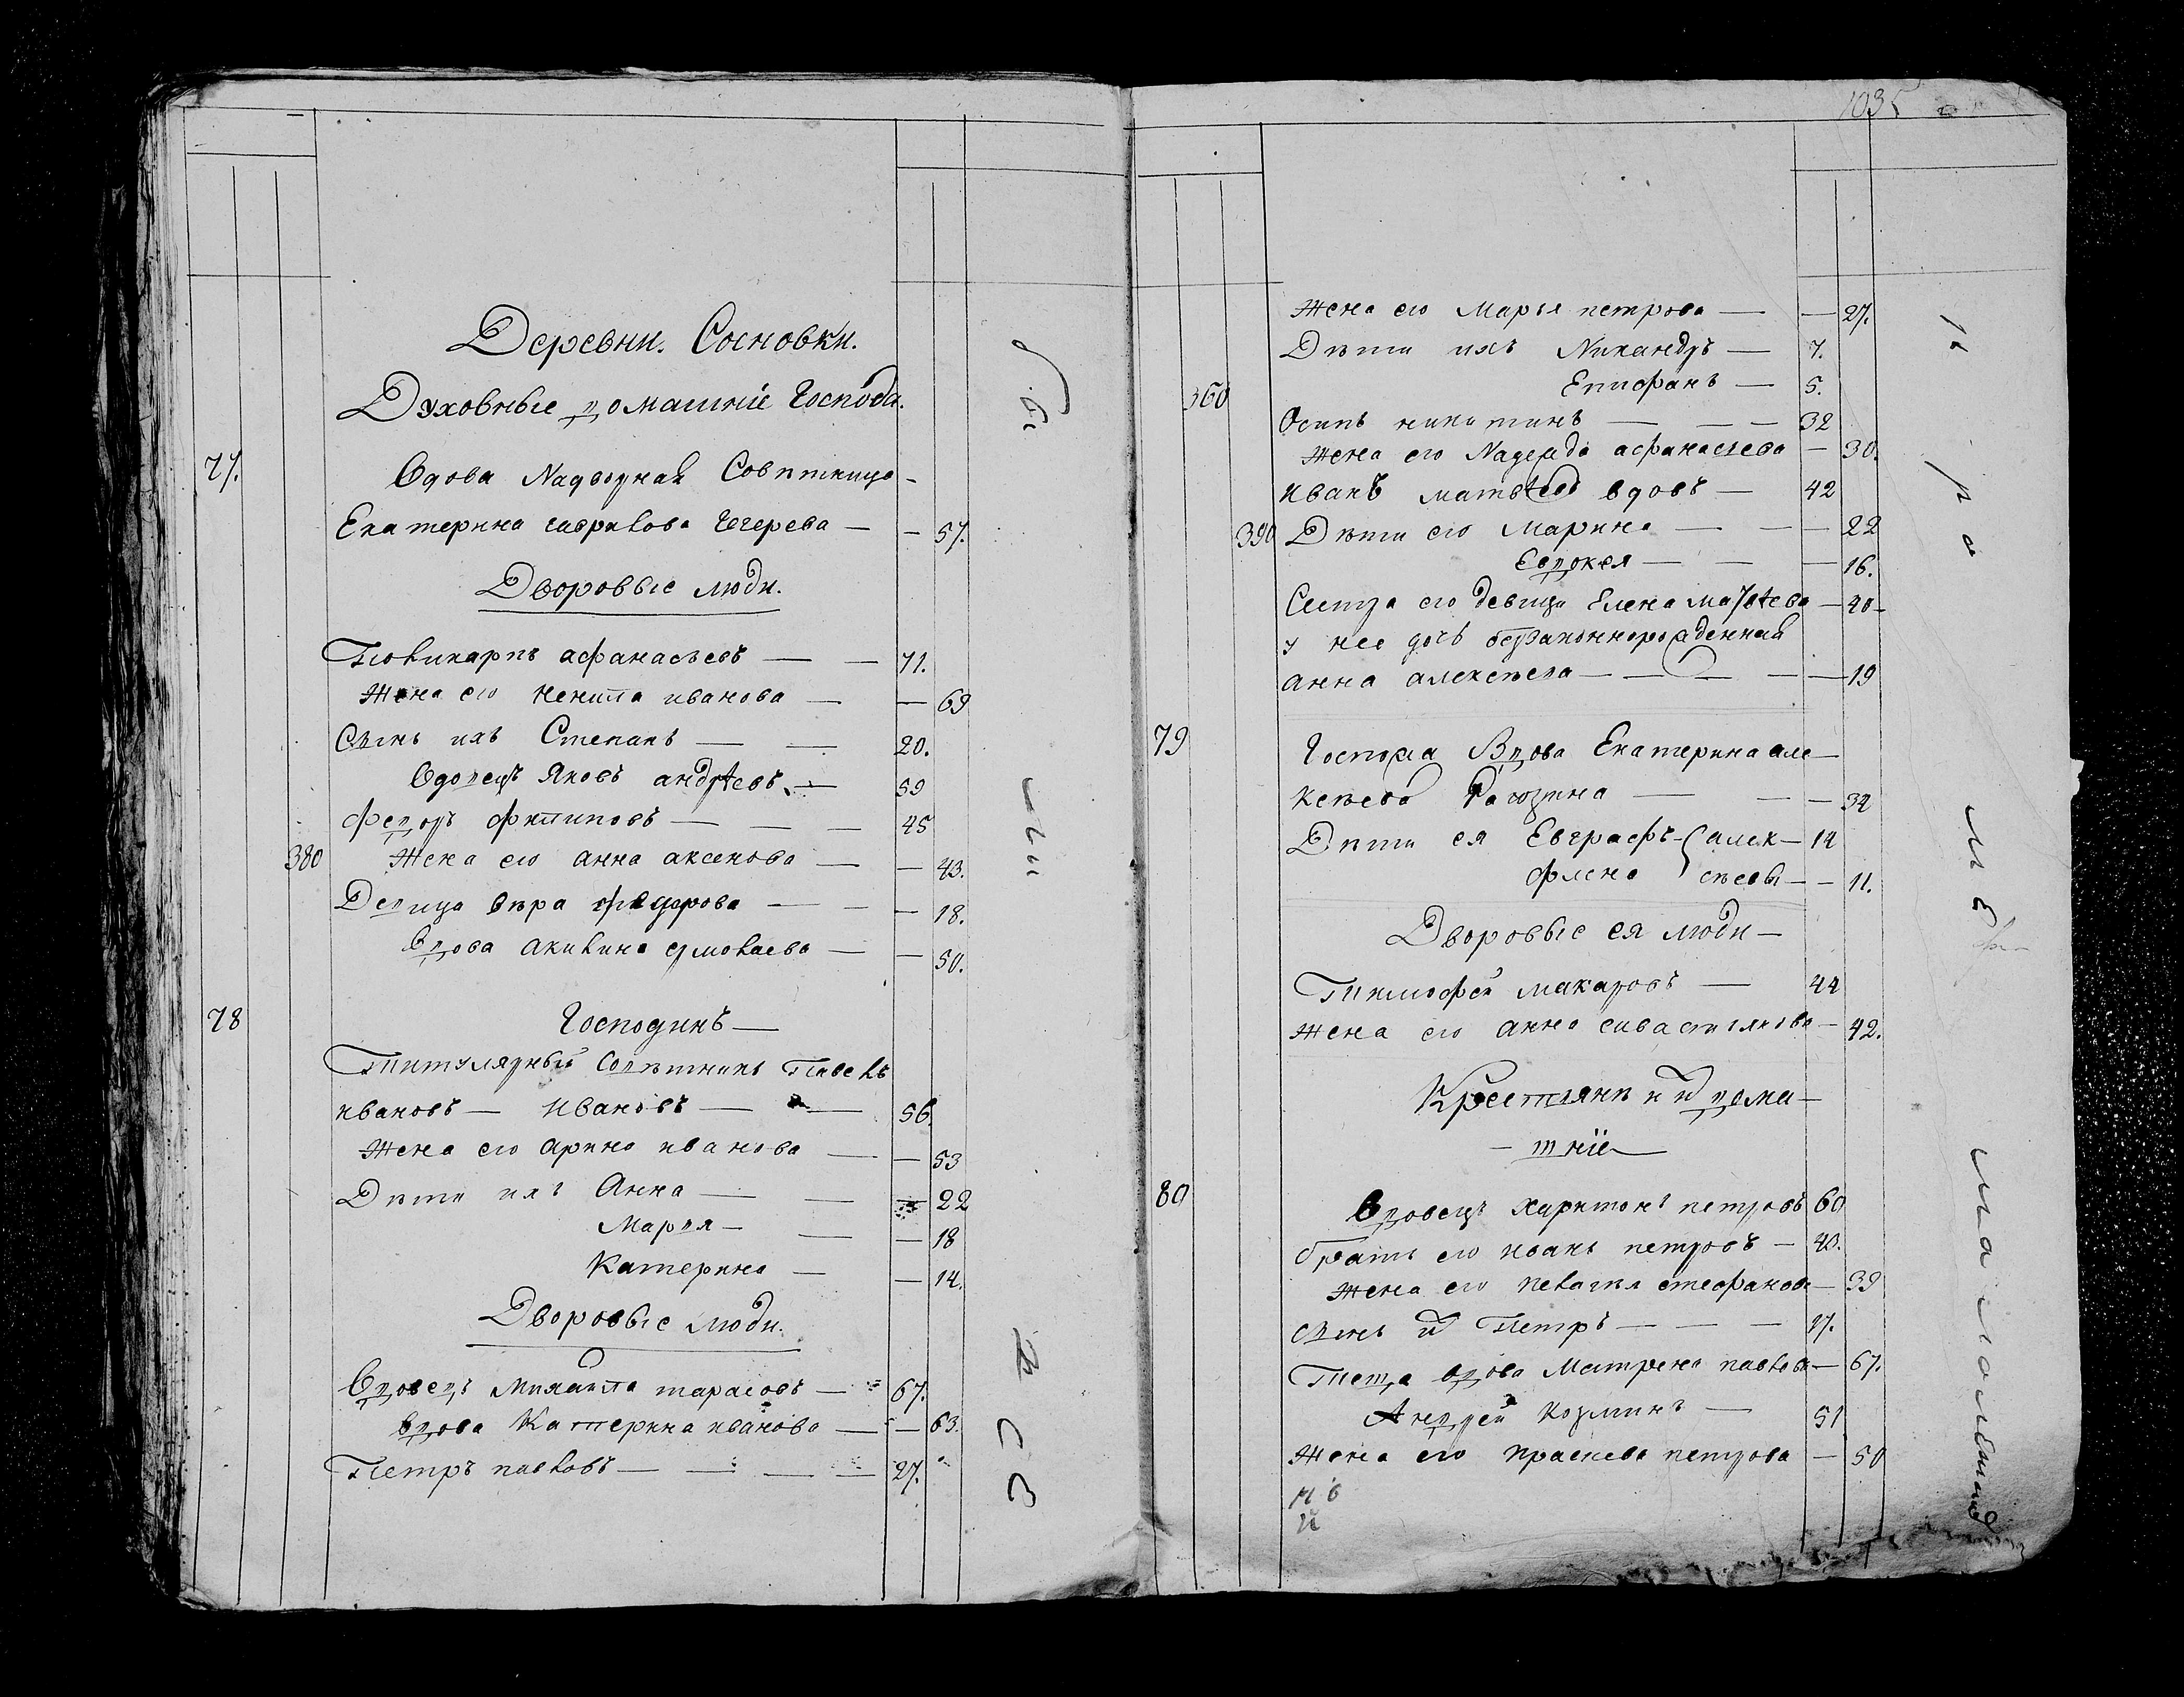 Деревни. Сосновки.
Духовные домашніе Господа.
77. Вдова Надворная Совѣтница
Екатерина гаврилова Чегерева — — 57.
Дворовые люди.
Поликарпъ афанасьевъ — — 71.
Жена его Ненила иванова — — 69
Сынъ ихъ Степанъ — — 20.
Вдовецъ Яковъ андреевъ — 59
Федоръ филиповъ — — — 45
380 Жена его анна аксенова — — 43.
Девица вѣра федорова — — — 18.
Вдова акилина ермолаева — — 50.
78 Господинъ —
Титулярный Совѣтникъ Павелъ
ивановъ — Ивановъ — — 56.
Жена его арина иванова — — 53
Дѣти ихъ Анна — — — 22
Марья — — — 18
Катерина — — 14.
Дворовые люди.
Вдовецъ Михаила тарасовъ — 67.
вдова Катерина иванова — — 63.
Петръ павловъ — — — — 27.
1035
Жена его Марья петрова — — 27.
Дѣти ихъ Никандръ — 7.
360 Епифанъ — 5.
Осипъ никитинъ — — — 32
Жена его Надежда афанасьева — 30.
Иванъ матвеевъ вдовъ — 42
390 Дѣти его Марина — — — 22
Евдокея — — — 16.
Сестра его девица Елена матвеева — 40 —
у нее дочь беззаконнорожденная
анна алексеева — — — — — 19
79 Госпожа Вдова Екатерина але—
ксѣева Рагозина — — — 34
Дѣти ея Евграфъ — алек — 14
флена сѣевы — — 11.
Дворовые ея люди —
Тимофей макаровъ — 44
Жена его анна севастьянова — 42.
Крестьянѣ и ихъ дома—
— шніе —
80 Вдовецъ харитонъ петровъ 60
братъ его иванъ петровъ — 43.
Жена его пелагея стефанова — 39
сынъ ихъ Петръ — — — 17.
Теща вдова Матрена павлова — 67.
Андрей козминъ — 51
Жена его праскева петрова — 50